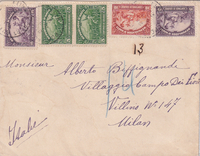 13
Monsieur Alberto Biffignandi
Villaggio Campo dei Fiori
Villino Nº 147
Milan
Italie